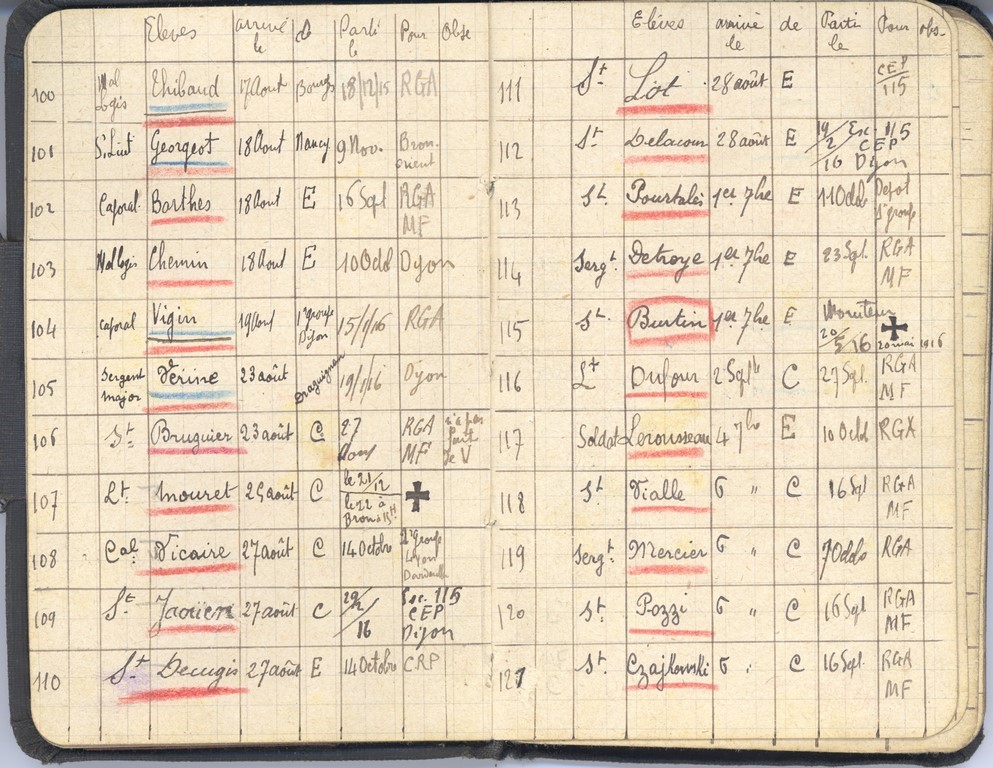 Elèves arrivé le de Parti le Pour Obse
100 Mal Logis Thibaud 17 Aout Bourges 18/12/15 RGA
101 S/Lieut Georgeot 18 Aout Nancy 9 Nov.
102 Caporal Barthes 18 Aout E 16 Sept RGA MF
103 Mal logis Chemin 18 Aout E 10 Octo Dyon
104 caporal Vigin 19 Aout 1er groupe Dijon 15/1/16 RGA
105 Sergent major Vérine 23 août Draguignan 19/1/16 Dyon
106 St Bruguier 23 août C 27 Aout RGA MF
107 Lt. Mouret 25 août C le 21/12 le 22 à Bron
108 Cal Vicaire 27 août C 14 Octobre Lyon
109 St Jaouen 27 août C 29/2/16 Esc. 115 CEP Dijon
110 St Denugis 27 août E 14 Octobre CRP
Elèves arrivé le de Parti le Pour obs.
111 St Lot 28 août E CEP 115
112 St Delacour 28 août E 19/2/16 Esc. 115 CEP Dijon
113 St. Pourtalès 1er 7bre E 11 Octo Depot 1er groupe
114 Sergt. Detroye 1er 7bre E 23 Sept. RGA MF
115 St. Burtin 1er 7bre E Moniteur 20/5/16 20 mai 1916
116 Lt Dufour 2 Sept C 27 Sept. RGA MF
117 Soldat Lerousseau 4 7bre E 10 Octo RGA
118 St Vialle 6 " C 16 Sept RGA MF
119 Sergt. Mercier 6 " C 7 Octo RGA
120 St. Pozzi 6 " C 16 Sept RGA MF
121 St. Czajkowski 6 " C 16 Sept. RGA MF